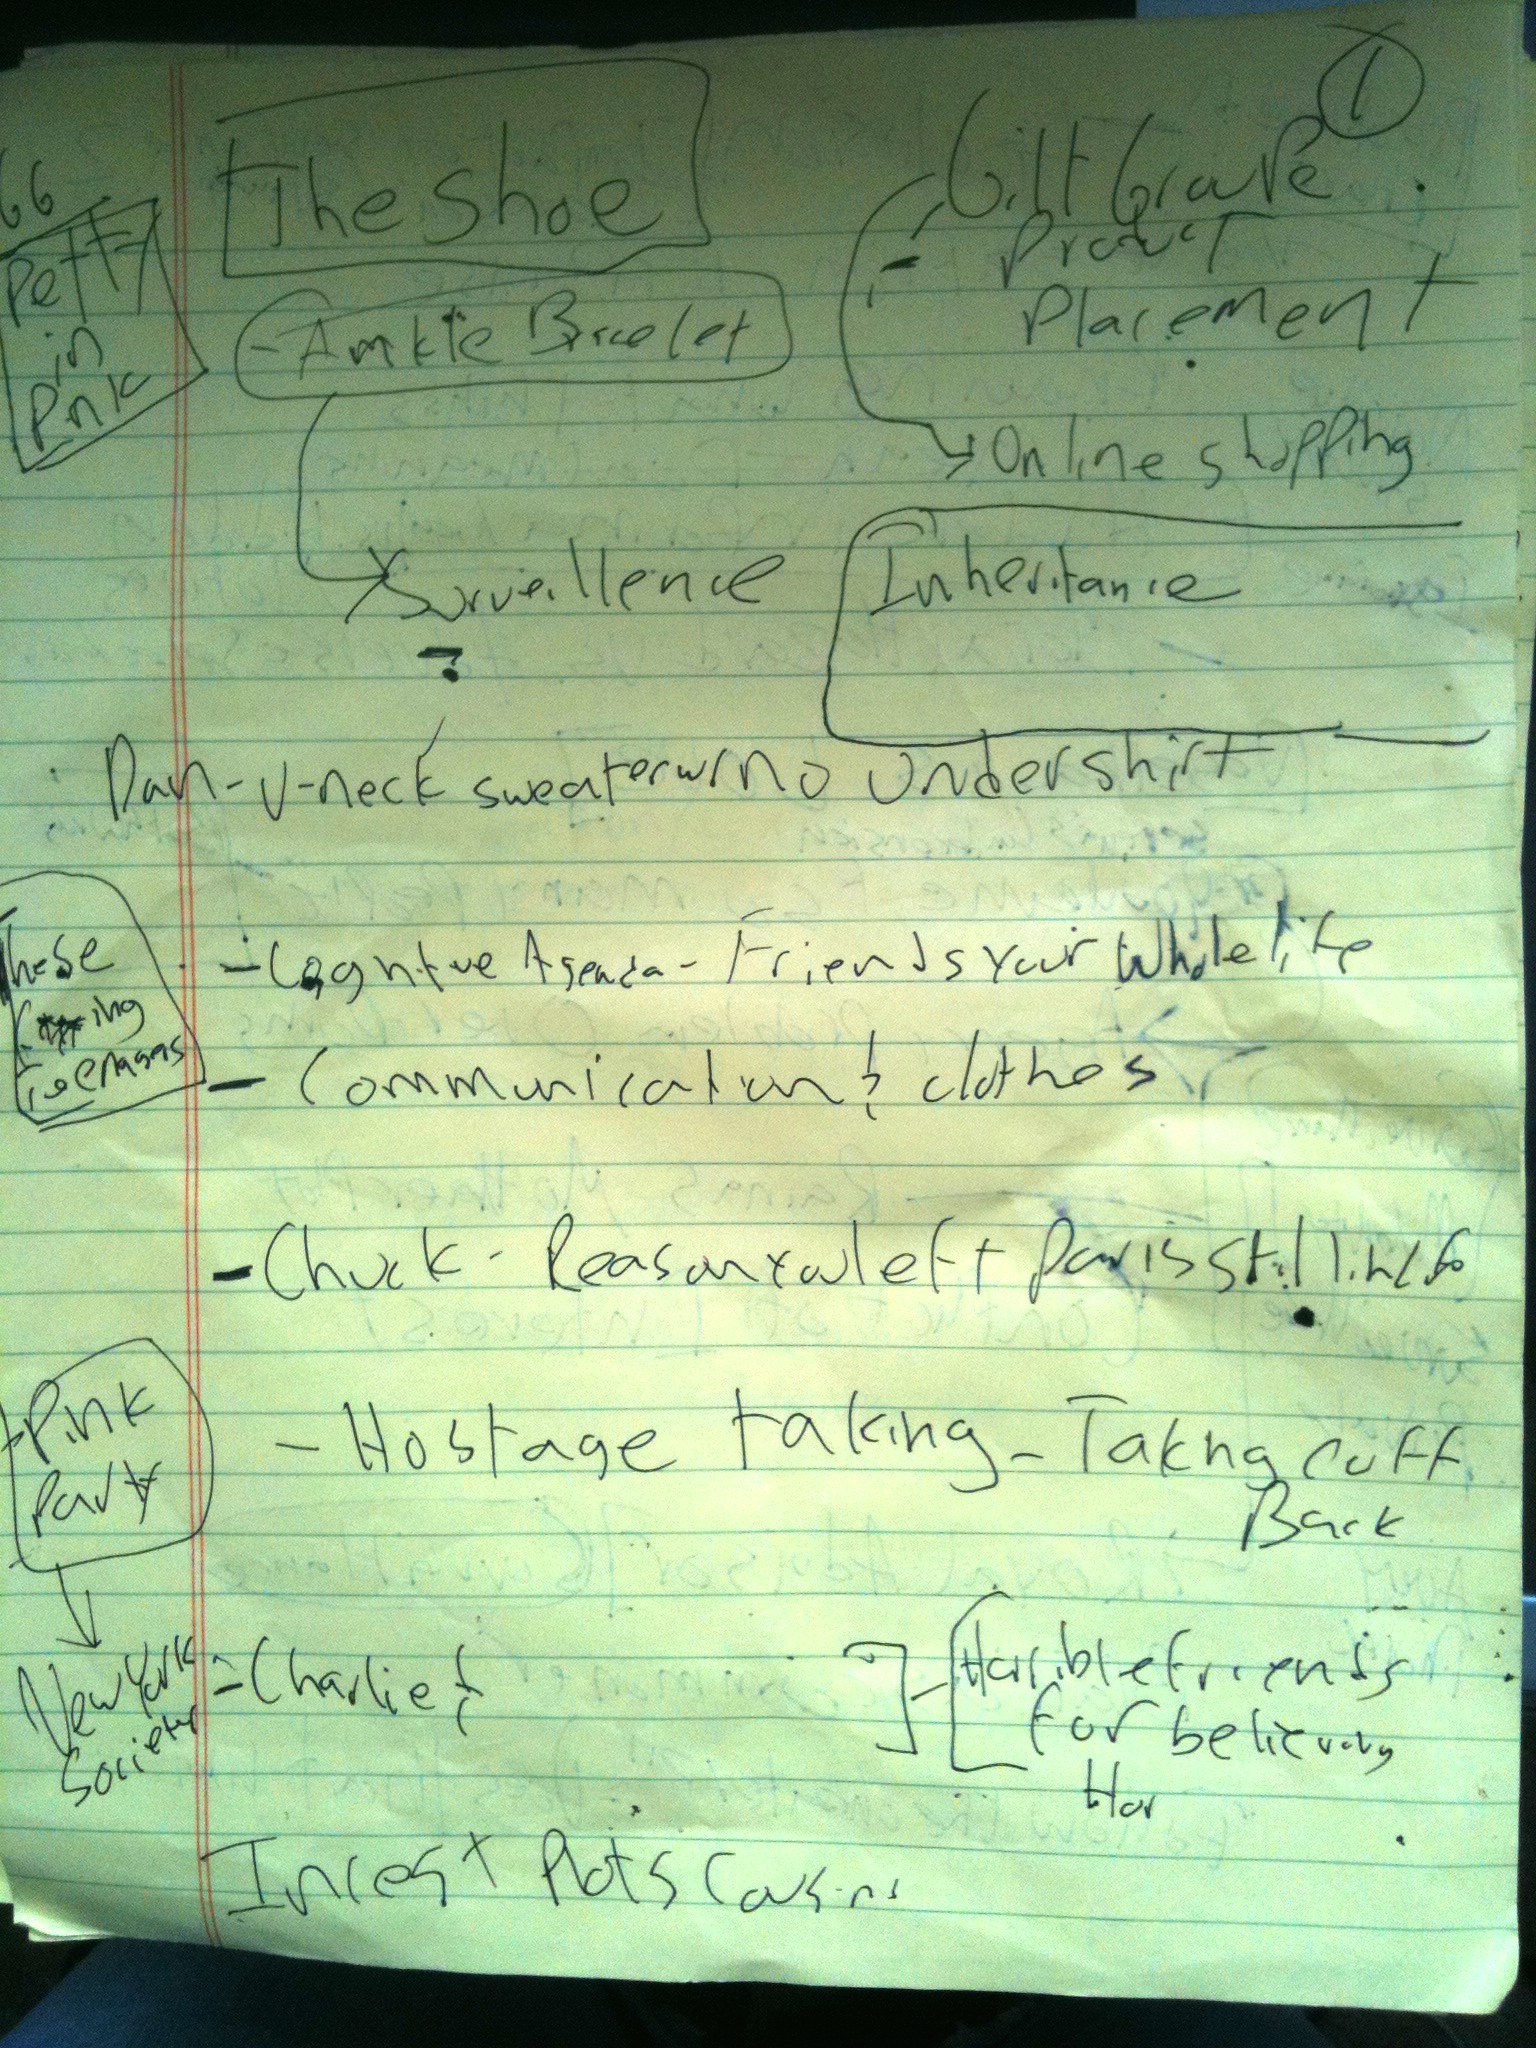 1
GG
Petty
in
Pink
The Shoe
- Ankle Bracelet
Surveillence
Gilt Groupe
- Product
Placement
Online shopping
Inheritance
Dan - V-neck sweater w/ no undershirt
These
ing
Teenagers
- Cognitive Agenda - Friends your whole life
- Communication & clothes
- Chuck - Reason you left Paris still in
- Hostage taking - Taking cuff
Back
Pink
Party
New York
Society
- Charlie &
Horrible friends
for believing
Her
Incest Plots Cousins